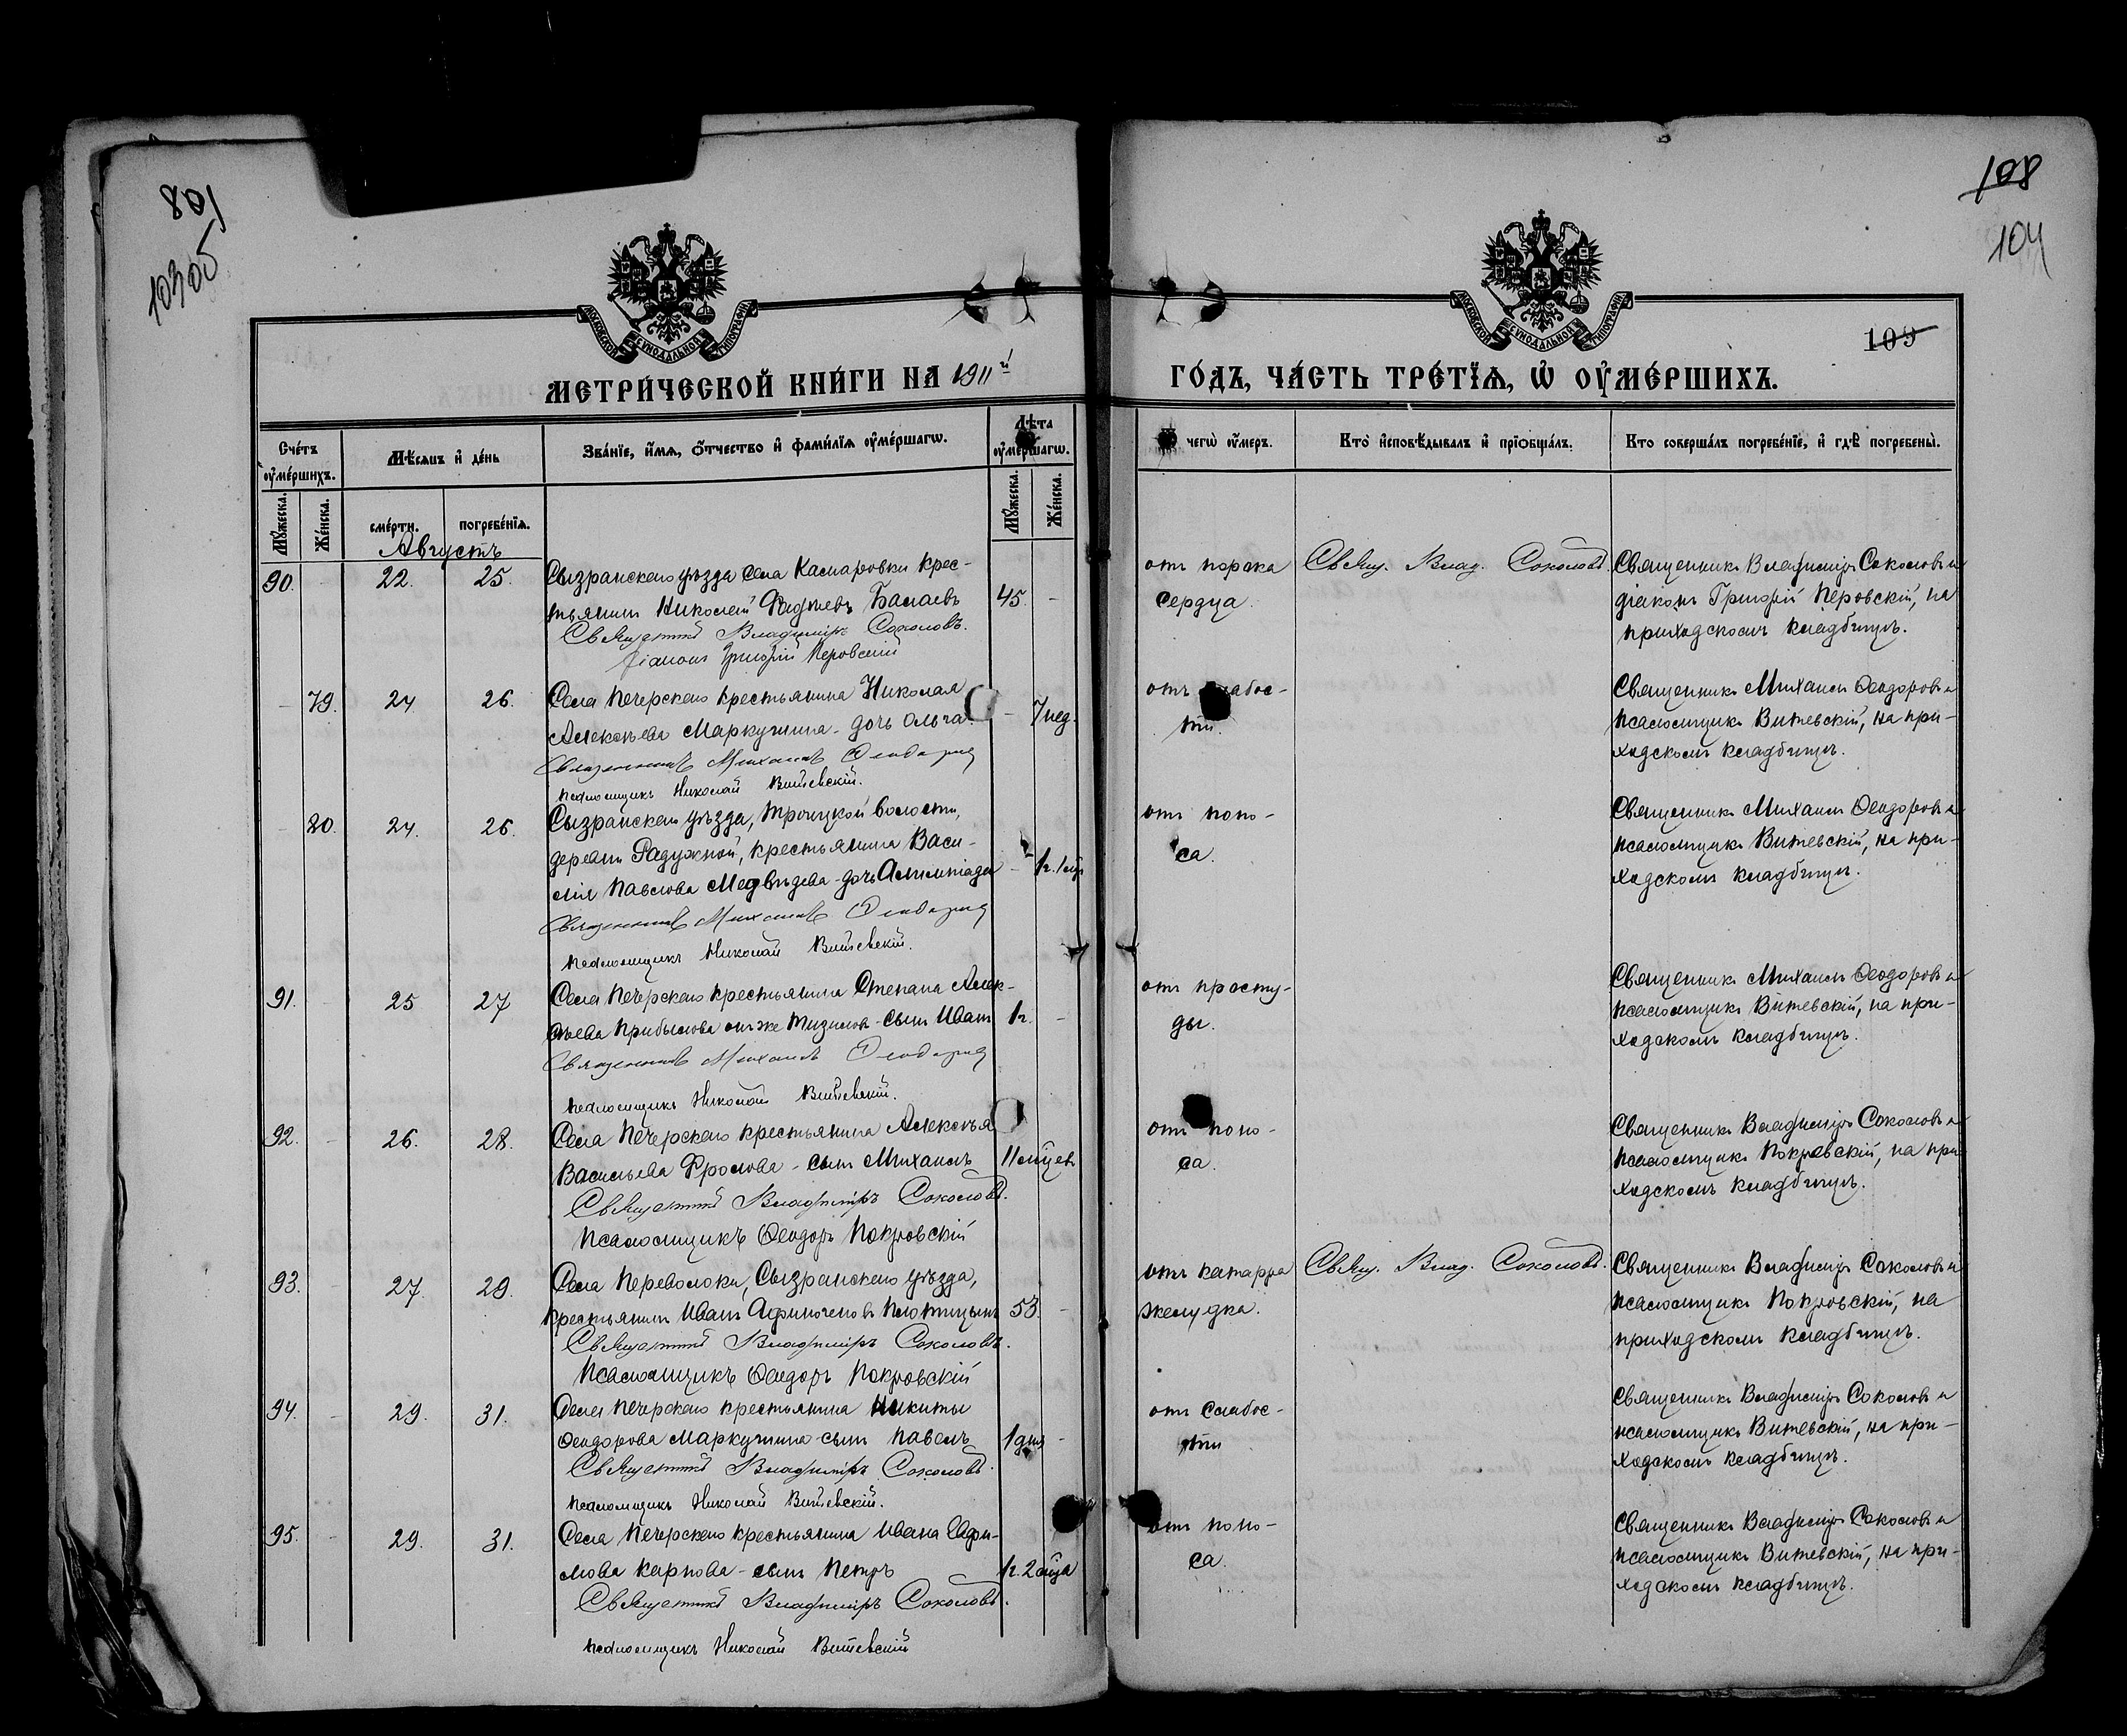 801
103об
108
104
109
МОСКОВСКОЙ СѴНОДАЛЬНОЙ ТИПОГРАФІИ
МОСКОВСКОЙ СѴНОДАЛЬНОЙ ТИПОГРАФІИ
МЕТРИ́ЧЕСКОЙ КНИ́ГИ НА 1911й
ГО́ДЪ, ЧА́СТЬ ТРЕ́ТЇѦ, Ѡ҆ ОУ҆МЕ́РШИХЪ.
Сче́тъ оу҆ме́ршихъ.
Мѣ́сѧцъ и҆ де́нь
Зва́нїе, и҆́мѧ, о҆́тчество и҆ фами́лїѧ оу҆ме́ршагѡ.
Лѣ́та оу҆ме́ршагѡ.
чегѡ̀ оу҆́меръ.
Кто̀ и҆сповѣ́дывалъ и҆ прїѻбща́лъ.
Кто соверша́лъ погребе́нїе, и҆ гдѣ̀ погребены̀.
Мꙋ́жеска.
Же́нска.
сме́рти.
погребе́нїѧ.
Мꙋ́жеска.
Же́нска.
Августъ
90. - 22. 25. Сызранскаго уѣзда села Кашаровки крес-
тьянинъ Николай Фадѣевъ Балаевъ 45. -
Священникъ Владиміръ Соколовъ.
Діаконъ Григорій Перовскій
отъ порока
сердца.
Свящ. Влад. Соколовъ.
Священникъ Владиміръ Соколовъ и
діаконъ Григорій Перовскій, на
приходскомъ кладбищѣ.
- 79. 24 26. Села Печерскаго крестьянина Николая
Алексѣева Маркушина - дочь Ольга. - 7 нед.
Священникъ Михаилъ Ѳеодоровъ
Псаломщикъ Николай Витевскій.
отъ слабос-
ти.
Священникъ Михаилъ Ѳеодоровъ и
псаломщикъ Витевскій, на при-
ходскомъ кладбищѣ.
- 80. 24. 26. Сызранскаго уѣзда, Троицкой волости,
деревни Радужной, крестьянина Васи-
лія Павлова Медвѣдева - дочь Олимпіада - 1г. 1 мц
Священникъ Михаилъ Ѳеодоровъ
Псаломщикъ Николай Витевскій.
отъ поно-
са.
Священникъ Михаилъ Ѳеодоровъ и
псаломщикъ Витевскій, на при-
ходскомъ кладбищѣ.
91. - 25 27 Села Печерскаго крестьянина Степана Алек-
сѣева Прибылова онъ же - сынъ Иванъ 1г. -
Священникъ Михаилъ Ѳеодоровъ
Псаломщикъ Николай Витевскій.
отъ просту-
ды.
Священникъ Михаилъ Ѳеодоровъ и
псаломщикъ Витевскій, на при-
ходскомъ кладбищѣ.
92. - 26. 28. Села Печерскаго крестьянина Алексѣя
Васильева Фролова - сынъ Михаилъ 11 мѣцев
Священникъ Владиміръ Соколовъ.
Псаломщикъ Ѳеодоръ Покровскій
отъ поно-
са.
Священникъ Владиміръ Соколовъ и
псаломщикъ Покровскій, на при
ходскомъ кладбищѣ.
93. - 27. 29. Села Переволоки, Сызранскаго уѣзда,
крестьянинъ Иванъ Афиногеновъ Плотицынъ 53. -
Священникъ Владиміръ Соколовъ.
Псаломщикъ Ѳеодоръ Покровскій
отъ катарра
желудка.
Свящ. Влад. Соколовъ.
Священникъ Владиміръ Соколовъ и
псаломщикъ Покровскій, на
приходскомъ кладбищѣ.
94. - 29. 31. Села Печерскаго крестьянина Никиты
Ѳеодорова Маркушина - сынъ Павелъ 1 дня -
Священникъ Владиміръ Соколовъ.
Псаломщикъ Николай Витевскій.
отъ слабос-
ти
Священникъ Владиміръ Соколовъ и
псаломщикъ Витевскій, на при-
ходскомъ кладбищѣ.
95. - 29. 31. Села Печерскаго крестьянина Ивана Евфи-
мова Карпова - сынъ Петръ 1г. 2 мца
Священникъ Владиміръ Соколовъ.
Псаломщикъ Николай Витевскій
отъ поно-
са.
Священникъ Владиміръ Соколовъ и
псаломщикъ Витевскій, на при-
ходскомъ кладбищѣ.